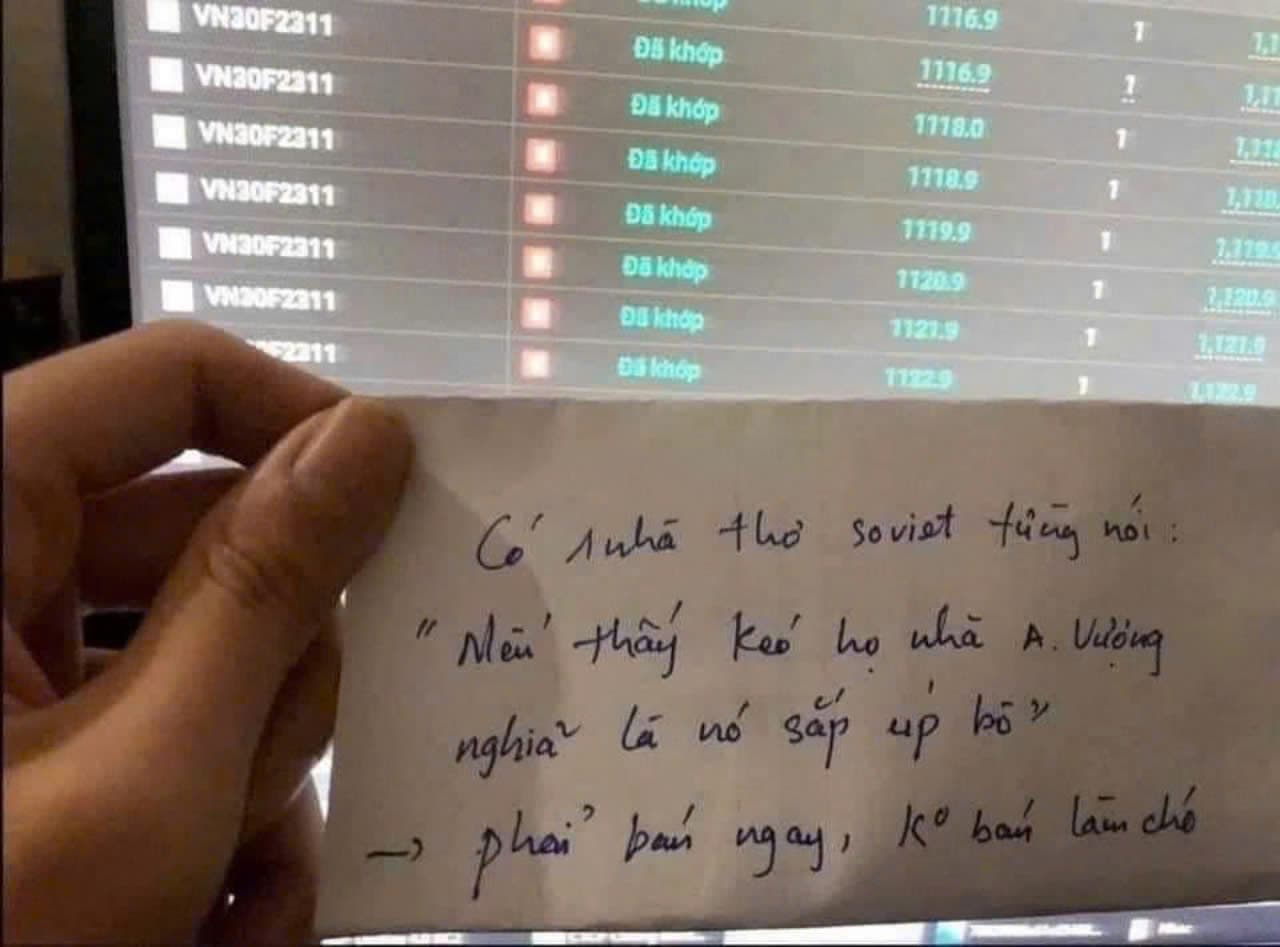 Đã khớp 1116.9 1 1,1
VN30F2311 Đã khớp 1116.9 1 1,11
VN30F2311 Đã khớp 1118.0 1 1,118
VN30F2311 Đã khớp 1118.9 1 1,118.
VN30F2311 Đã khớp 1119.9 1 1,119.9
VN30F2311 Đã khớp 1120.9 1 1,120.9
VN30F2311 Đã khớp 1121.9 1 1,121.9
F2311 Đã khớp 1122.9 1 1,122.9
Có 1 nhà thơ soviet từng nói:
"Nếu thấy kéo họ nhà A. Vượng
nghĩa là nó sắp úp bô"
→ phải bán ngay, ko bán làm chó